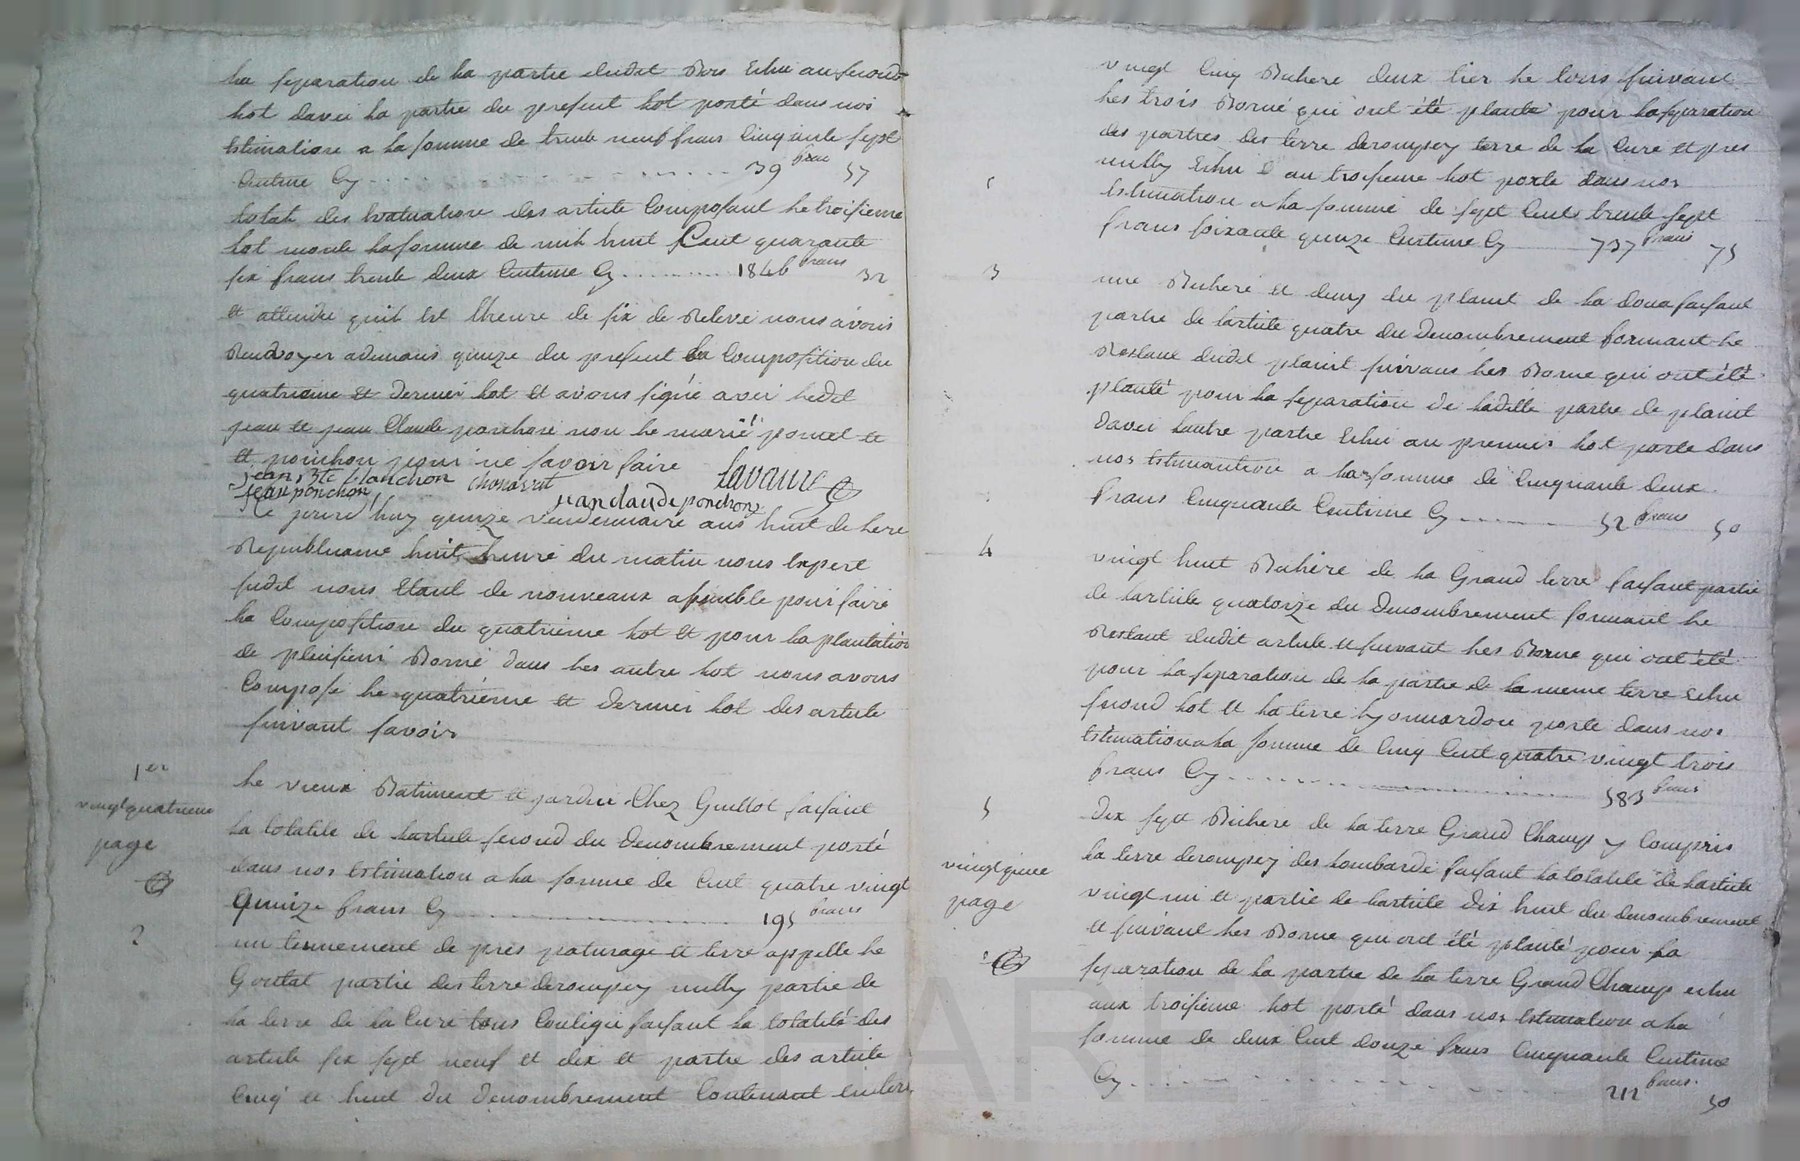 la separation de la partie dudit Bois Echu au second
lot davec la partie du present lot porté dans nos
Estimation a la somme de trente neuf frans Cinquante sept
Centime Cy 39 frans 57
total des Evaluation des article Composant le troisieme
lot monte la somme de mil huit Cent quarante
six frans trente deux Centime Cy 1846 frans 32
et attendu quil Est lheure de six de Relevé nous avons
Renvoyer a demain quinze du present la Composition du
quatrieme et Dernier lot et avons signé avec ledit
jean et jean Claude ponchon non le marié et
et ponchon pour ne savoir faire
jean Bte planchon chonavat Lavaure
jean ponchon jean claude ponchon
Ce jourd'huy quinze vendemiaire ans huit de lere
Republicaine huit heure du matin nous Expert
sudit nous Etant de nouveaux assemblé pour faire
la Composition du quatrieme lot et pour la plantation
de plusieurs Borne dans les autre lot nous avons
Composé le quatrieme et Dernier lot des article
suivant savoir
1er
vingt quatrieme
page
le vieux Batiment et jardin Chez Guillot faisant
la totalité de larticle second du Denombrement porté
dans nos Estimation a la somme de Cent quatre vingt
Quinze frans Cy 195 frans
2
un tennement de pres paturage et terre appelle le
Gouttat partie des terre derompey partie de
la terre de la Cure tous Contigu faisant la totalité des
article six sept neuf et dix et partie des article
Cinq et huit du Denombrement Contenant
vingt Cinq Bichere deux tier le tous suivant
les trois Borne qui ont été planté pour la separation
des parties des terre derompey terre de la Cure et pres
Echu au troisieme lot porté dans nos
Estimation a la somme de sept Cent trente sept
frans soixante quinze Centime Cy 737 frans 75
3
une Bichere et demy du plant de la doua faisant
partie de larticle quatre du Denombrement formant le
Restant dudit plant suivant les Borne qui ont été
planté pour la separation de ladite partie de plant
Davec lautre partie Echu au premier lot porté dans
nos Estimantion a la somme de Cinquante deux
frans Cinquante Centime Cy 52 frans 50
4
vingt huit Bichere de la Grand terre faisant partie
de larticle quatorze du Denombrement formant le
Restant dudit article et suivant les Borne qui ont été
pour la separation de la partie de la meme terre Echu
second lot et la terre porté dans nos
Estimation a la somme de Cinq Cent quatre vingt trois
frans Cy 583 frans
5
vingt quieme
page
Dix sept Bichere de la terre Grand Champ y Compris
la terre derompey des lombarde faisant la totalité de larticle
vingt un et partie de larticle dix huit du denombrement
et suivant les Borne qui ont été planté pour la
separation de la partie de la terre Grand Champ echu
aux troisieme lot porté dans nos Estimation a la
somme de deux Cent douze frans Cinquante Centime
Cy 212 frans 50
CHAREYR